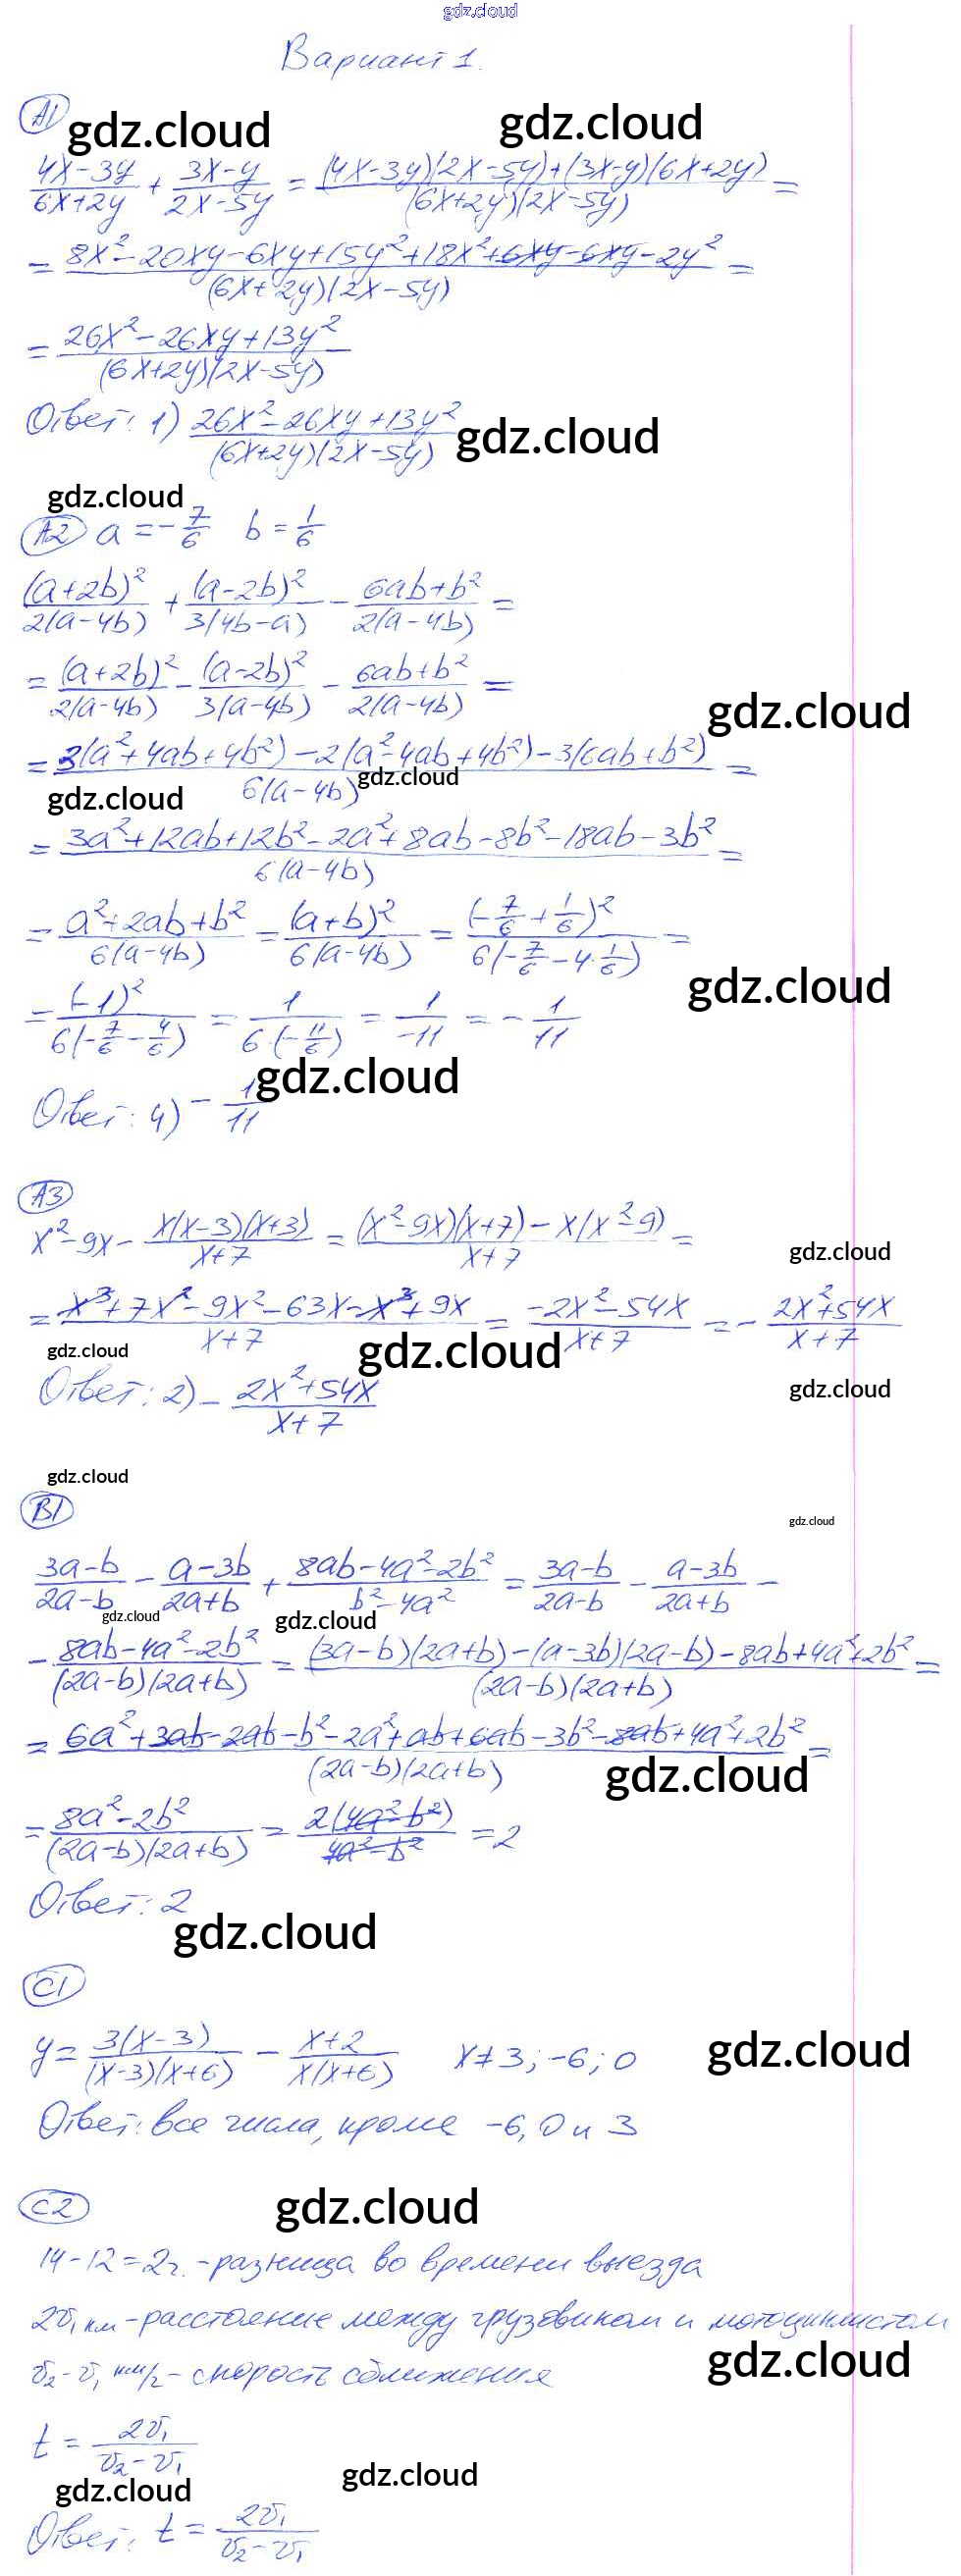 gdz.cloud
Вариант 1.
А1
gdz.cloud gdz.cloud
(4x-3y)/(6x+2y) + (3x-y)/(2x-5y) = ((4x-3y)(2x-5y)+(3x-y)(6x+2y))/((6x+2y)(2x-5y)) =
= (8x²-20xy-6xy+15y²+18x²+6xy-6xy-2y²)/((6x+2y)(2x-5y)) =
= (26x²-26xy+13y²)/((6x+2y)(2x-5y))
Ответ: 1) (26x²-26xy+13y²)/((6x+2y)(2x-5y))
gdz.cloud
gdz.cloud
А2 a = -7/6 b = 1/6
(a+2b)²/(2(a-4b)) + (a-2b)²/(3(4b-a)) - (6ab+b²)/(2(a-4b)) =
= (a+2b)²/(2(a-4b)) - (a-2b)²/(3(a-4b)) - (6ab+b²)/(2(a-4b)) =
gdz.cloud
= (3(a²+4ab+4b²)-2(a²-4ab+4b²)-3(6ab+b²))/(6(a-4b)) =
gdz.cloud
gdz.cloud
= (3a²+12ab+12b²-2a²+8ab-8b²-18ab-3b²)/(6(a-4b)) =
= (a²+2ab+b²)/(6(a-4b)) = (a+b)²/(6(a-4b)) = (-7/6+1/6)²/(6(-7/6-4·1/6)) =
gdz.cloud
= (-1)²/(6(-7/6-4/6)) = 1/(6·(-11/6)) = 1/-11 = -1/11
gdz.cloud
Ответ: 4) -1/11
А3
x²-9x - x(x-3)(x+3)/(x+7) = ((x²-9x)(x+7)-x(x²-9))/(x+7) =
gdz.cloud
= (x³+7x²-9x²-63x-x³+9x)/(x+7) = (-2x²-54x)/(x+7) = -(2x²+54x)/(x+7)
gdz.cloud gdz.cloud
Ответ: 2) -(2x²+54x)/(x+7)
gdz.cloud
gdz.cloud
В1
gdz.cloud
(3a-b)/(2a-b) - (a-3b)/(2a+b) + (8ab-4a²-2b²)/(b²-4a²) = (3a-b)/(2a-b) - (a-3b)/(2a+b) -
gdz.cloud gdz.cloud
- (8ab-4a²-2b²)/((2a-b)(2a+b)) = ((3a-b)(2a+b)-(a-3b)(2a-b)-8ab+4a²+2b²)/((2a-b)(2a+b)) =
= (6a²+3ab-2ab-b²-2a²+ab+6ab-3b²-8ab+4a²+2b²)/((2a-b)(2a+b)) =
gdz.cloud
= (8a²-2b²)/((2a-b)(2a+b)) = 2(4a²-b²)/(4a²-b²) = 2
Ответ: 2
gdz.cloud
С1
y = 3(x-3)/((x-3)(x+6)) - (x+2)/(x(x+6)) x≠3; -6; 0
gdz.cloud
Ответ: все числа, кроме -6, 0 и 3
С2
gdz.cloud
14-12=2ч. -разница во времени выезда
2v₁ км -расстояние между грузовиком и мотоциклистом
v₂-v₁ км/ч - скорость сближения
gdz.cloud
t = 2v₁/(v₂-v₁)
gdz.cloud gdz.cloud
Ответ: t = 2v₁/(v₂-v₁)